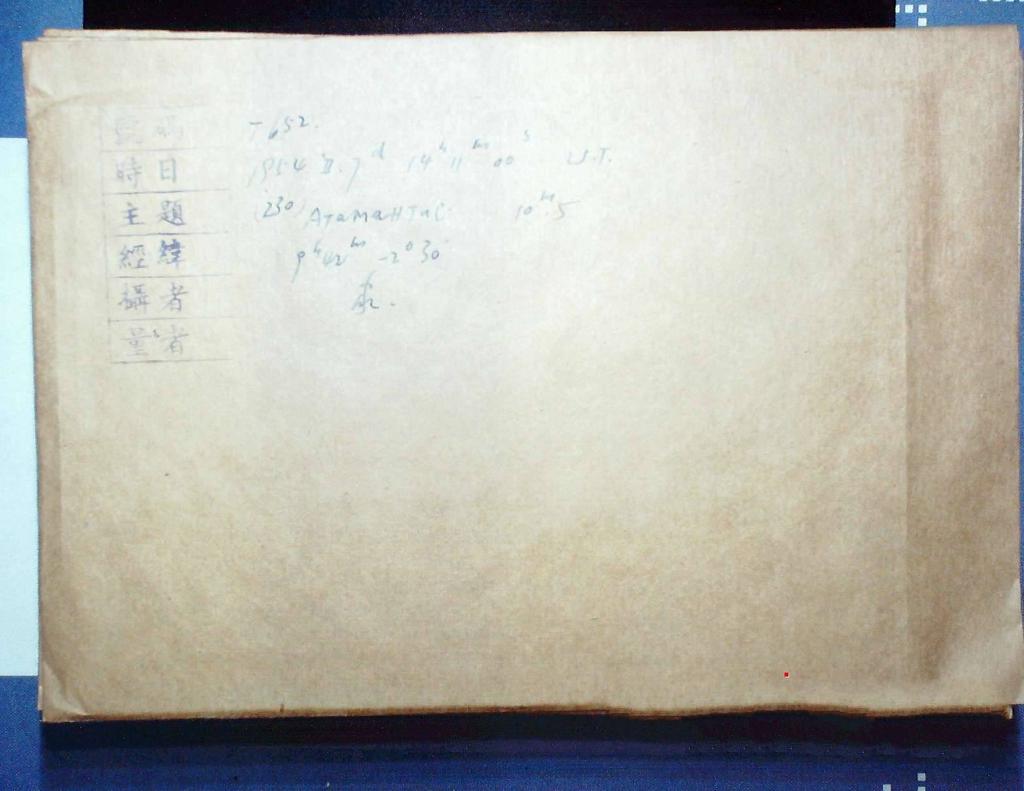 號碼 T652.
時日 1954 II. 7ᵈ 14ʰ 11ᵐ 00ˢ U.T.
主題 (230) АтамантиС 10ᵐ.5
經緯 9ʰ42ᵐ -2°30'
攝者
量者